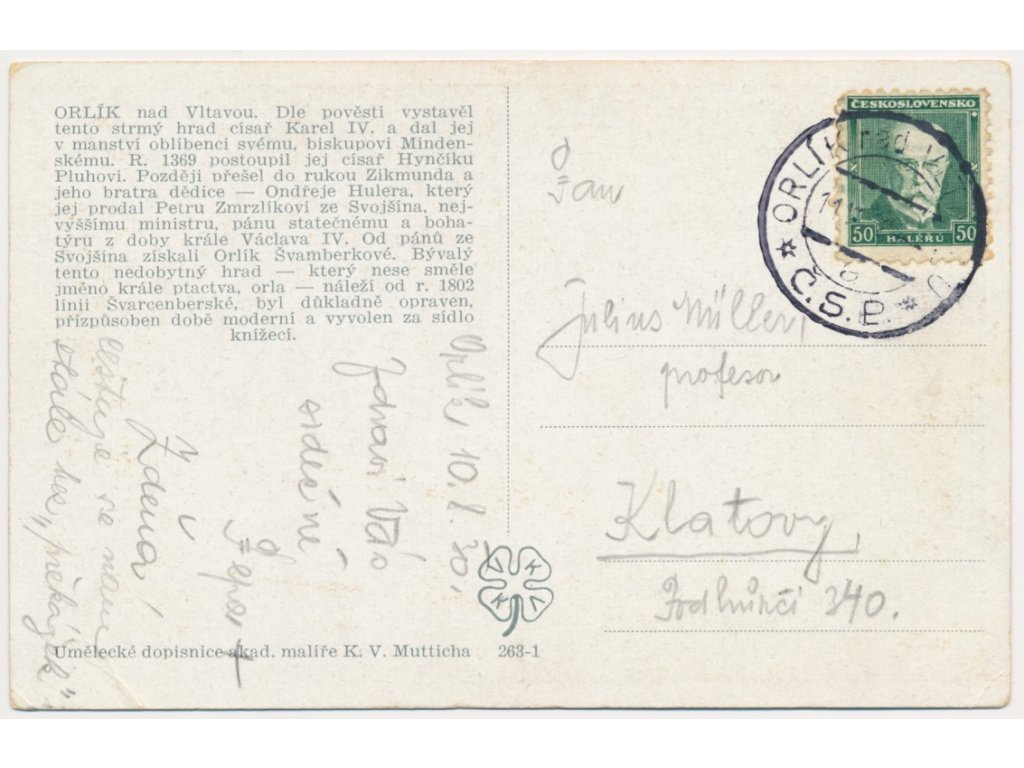 ORLÍK nad Vltavou. Dle pověsti vystavěl
tento strmý hrad císař Karel IV. a dal jej
v manství oblíbenci svému, biskupovi Minden-
skému. R. 1369 postoupil jej císař Hynčíku
Pluhovi. Později přešel do rukou Zikmunda a
jeho bratra dědice — Ondřeje Hulera, který
jej prodal Petru Zmrzlíkovi ze Svojšína, nej-
vyššímu ministru, pánu statečnému a boha-
týru z doby krále Václava IV. Od pánů ze
Svojšína získali Orlík Švamberkové. Bývalý
tento nedobytný hrad — který nese směle
jméno krále ptactva, orla — náleží od r. 1802
linii Švarcenberské, byl důkladně opraven,
přizpůsoben době moderní a vyvolen za sídlo
knížecí.
Orlík, 10./8. 30.
Zdraví Vás
srdečně
Zdena!
Cestuje se nám
stále bez
Umělecké dopisnice akad. malíře K. V. Mutticha 263-1
K V
ČESKOSLOVENSKO
50 HALÉRŮ 50
ORLÍK nad
Č.S.P.
Pan
Julius Müller,
profesor
Klatovy,
340.